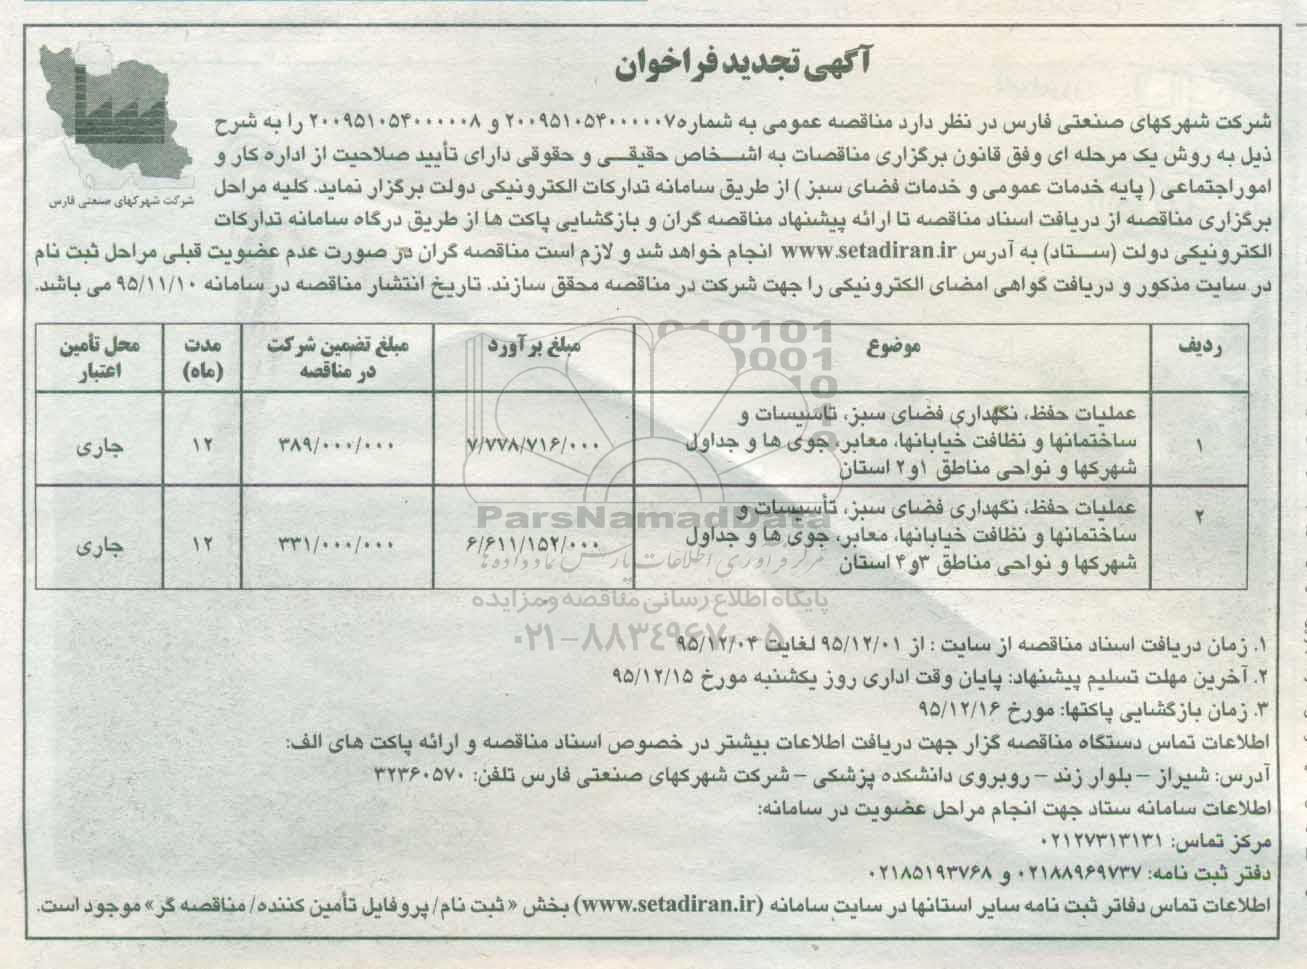 آگهی تجدید فراخوان
شرکت شهرکهای صنعتی فارس
شرکت شهرکهای صنعتی فارس در نظر دارد مناقصه عمومی به شماره۲۰۰۹۵۱۰۵۴۰۰۰۰۰۷ و ۲۰۰۹۵۱۰۵۴۰۰۰۰۰۸ را به شرح
ذیل به روش یک مرحله ای وفق قانون برگزاری مناقصات به اشخاص حقیقی و حقوقی دارای تأیید صلاحیت از اداره کار و
اموراجتماعی ( پایه خدمات عمومی و خدمات فضای سبز ) از طریق سامانه تدارکات الکترونیکی دولت برگزار نماید. کلیه مراحل
برگزاری مناقصه از دریافت اسناد مناقصه تا ارائه پیشنهاد مناقصه گران و بازگشایی پاکت ها از طریق درگاه سامانه تدارکات
الکترونیکی دولت (ستاد) به آدرس www.setadiran.ir انجام خواهد شد و لازم است مناقصه گران در صورت عدم عضویت قبلی مراحل ثبت نام
در سایت مذکور و دریافت گواهی امضای الکترونیکی را جهت شرکت در مناقصه محقق سازند. تاریخ انتشار مناقصه در سامانه ۹۵/۱۱/۱۰ می باشد.
ردیف موضوع مبلغ برآورد مبلغ تضمین شرکت در مناقصه مدت (ماه) محل تأمین اعتبار
۱ عملیات حفظ، نگهداری فضای سبز، تاسیسات و
ساختمانها و نظافت خیابانها، معابر، جوی ها و جداول
شهرکها و نواحی مناطق ۱و۲ استان
۷/۷۷۸/۷۱۶/۰۰۰ ۳۸۹/۰۰۰/۰۰۰ ۱۲ جاری
۲ عملیات حفظ، نگهداری فضای سبز، تأسیسات و
ساختمانها و نظافت خیابانها، معابر، جوی ها و جداول
شهرکها و نواحی مناطق ۳و۴ استان
۶/۶۱۱/۱۵۲/۰۰۰ ۳۳۱/۰۰۰/۰۰۰ ۱۲ جاری
ParsNamadData
مرکز فرآوری اطلاعات پارس نماد داده ها
پایگاه اطلاع رسانی مناقصه ومزایده
۰۲۱-۸۸۳۴۹۶۷۰-۵
۱. زمان دریافت اسناد مناقصه از سایت : از ۹۵/۱۲/۰۱ لغایت ۹۵/۱۲/۰۴
۲. آخرین مهلت تسلیم پیشنهاد: پایان وقت اداری روز یکشنبه مورخ ۹۵/۱۲/۱۵
۳. زمان بازگشایی پاکتها: مورخ ۹۵/۱۲/۱۶
اطلاعات تماس دستگاه مناقصه گزار جهت دریافت اطلاعات بیشتر در خصوص اسناد مناقصه و ارائه پاکت های الف:
آدرس: شیراز – بلوار زند – روبروی دانشکده پزشکی – شرکت شهرکهای صنعتی فارس تلفن: ۳۲۳۶۰۵۷۰
اطلاعات سامانه ستاد جهت انجام مراحل عضویت در سامانه:
مرکز تماس: ۰۲۱۲۷۳۱۳۱۳۱
دفتر ثبت نامه: ۰۲۱۸۸۹۶۹۷۳۷ و ۰۲۱۸۵۱۹۳۷۶۸
اطلاعات تماس دفاتر ثبت نامه سایر استانها در سایت سامانه (www.setadiran.ir) بخش « ثبت نام/ پروفایل تأمین کننده/ مناقصه گر» موجود است.